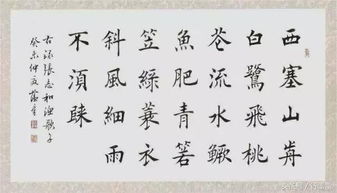 西塞山歬
白鷺飛桃
花流水鱖
魚肥青箬
笠綠蓑衣
斜風細雨
不須歸
古詞張志和漁歌子
癸未仲夏